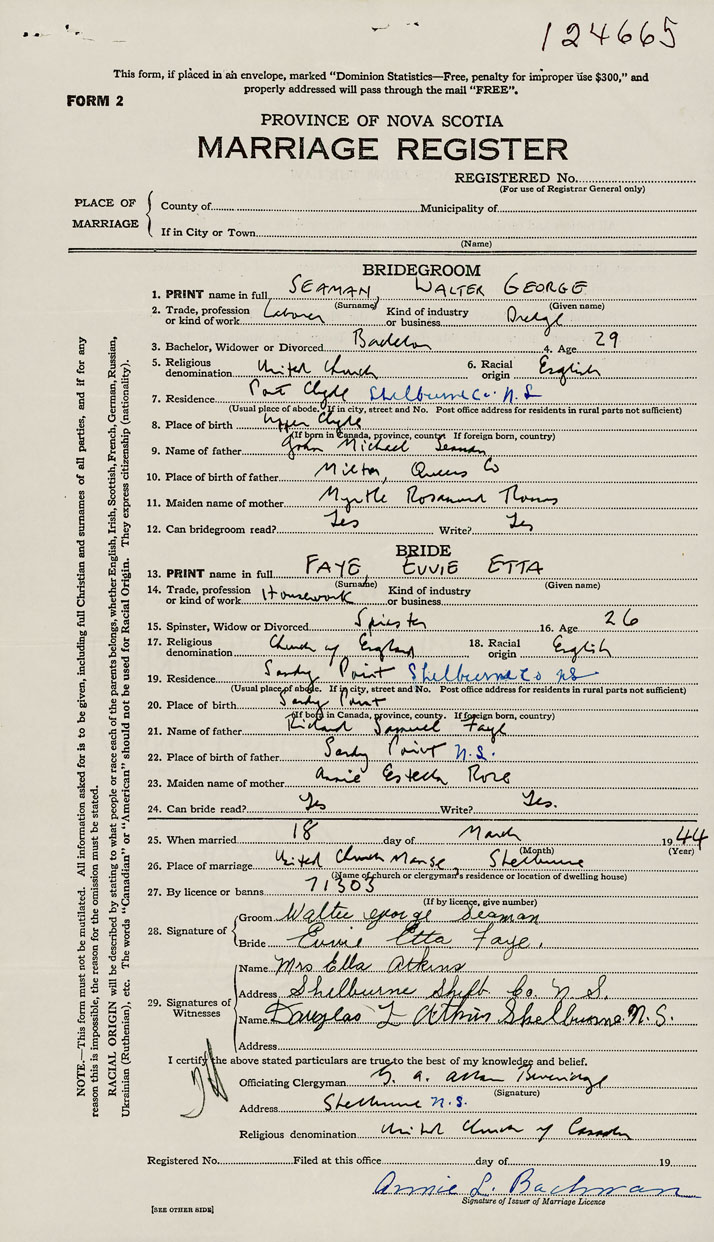 124665
This form, if placed in an envelope, marked "Dominion Statistics—Free, penalty for improper use $300," and
properly addressed will pass through the mail "FREE".
FORM 2
PROVINCE OF NOVA SCOTIA
MARRIAGE REGISTER
REGISTERED No.
(For use of Registrar General only)
PLACE OF MARRIAGE
County of Municipality of
If in City or Town
(Name)
BRIDEGROOM
1. PRINT name in full SEAMAN, WALTER GEORGE
(Surname) (Given name)
2. Trade, profession or kind of work Laborer Kind of industry or business Dredge
3. Bachelor, Widower or Divorced Bachelor 4. Age 29
5. Religious denomination United Church 6. Racial origin English
7. Residence Port Clyde Shelburne Co. N.S
(Usual place of abode. If in city, street and No. Post office address for residents in rural parts not sufficient)
8. Place of birth Upper Clyde
(If born in Canada, province, county If foreign born, country)
9. Name of father John Michael Seaman
10. Place of birth of father Milton, Queens Co
11. Maiden name of mother Myrtle Rosamund
12. Can bridegroom read? Yes Write? Yes
BRIDE
13. PRINT name in full FAYE, EVVIE ETTA
(Surname) (Given name)
14. Trade, profession or kind of work Housework Kind of industry or business
15. Spinster, Widow or Divorced Spinster 16. Age 26
17. Religious denomination Church of England 18. Racial origin English
19. Residence Sandy Point Shelburne Co NS
(Usual place of abode. If in city, street and No. Post office address for residents in rural parts not sufficient)
20. Place of birth Sandy Point
(If born in Canada, province, county. If foreign born, country)
21. Name of father Richard Samuel Faye
22. Place of birth of father Sandy Point N.S.
23. Maiden name of mother Annie Estella Rose
24. Can bride read? Yes Write? Yes.
25. When married 18 day of March 1944
(Month) (Year)
26. Place of marriage United Church Manse, Shelburne
(Name of church or clergyman's residence or location of dwelling house)
27. By licence or banns 71303
(If by licence, give number)
28. Signature of
Groom Walter George Seaman
Bride Evvie Etta Faye.
29. Signatures of Witnesses
Name Mrs Ella Atkins
Address Shelburne Shelb Co. N.S.
Name Douglas L Atkins Shelburne N.S.
Address
I certify the above stated particulars are true to the best of my knowledge and belief.
Officiating Clergyman G. A. Allan Beveridge
(Signature)
Address Shelburne N.S.
Religious denomination United Church of Canada
Registered No. Filed at this office day of 19
Annie L. Bachman
Signature of Issuer of Marriage Licence
[SEE OTHER SIDE]
NOTE.—This form must not be mutilated. All information asked for is to be given, including full Christian and surnames of all parties, and if for any
reason this is impossible, the reason for the omission must be stated.
RACIAL ORIGIN will be described by stating to what people or race each of the parents belongs, whether English, Irish, Scottish, French, German, Russian,
Ukrainian (Ruthenian), etc. The words "Canadian" or "American" should not be used for Racial Origin. They express citizenship (nationality).